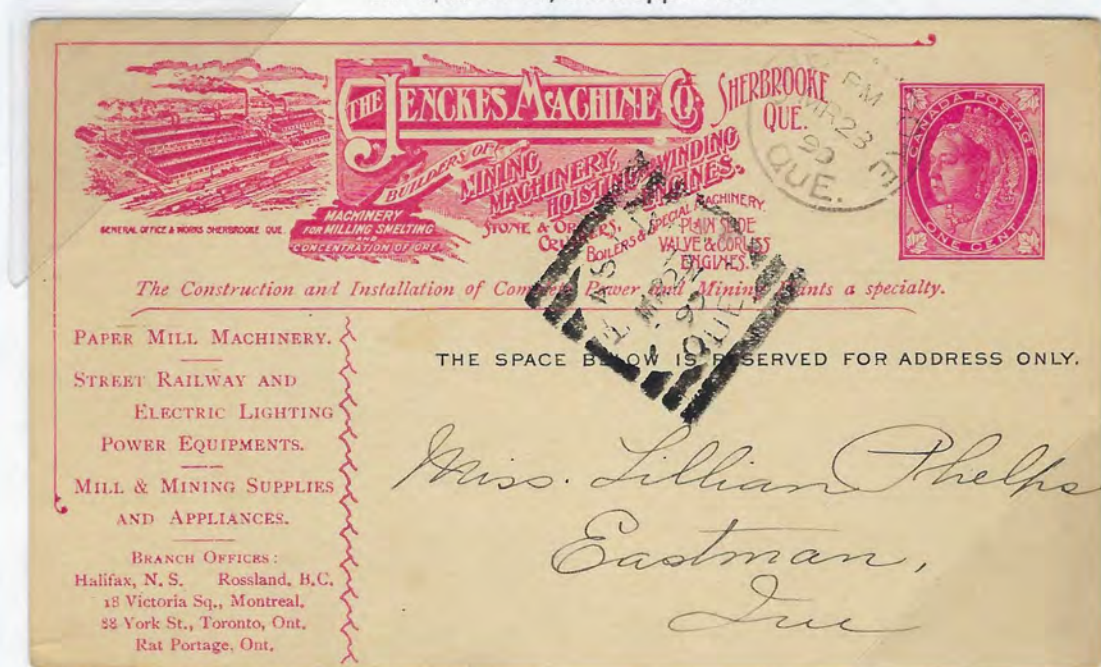 THE JENCKES MACHINE CO.
SHERBROOKE
QUE.
BUILDERS OF
MINING
MACHINERY,
HOISTING & WINDING
ENGINES.
MACHINERY
FOR MILLING SMELTING
AND
CONCENTRATION OF ORE.
STONE & ORE
CRUSHERS,
BOILERS & SPECIAL MACHINERY.
PLAIN SLIDE
VALVE & CORLISS
ENGINES.
GENERAL OFFICE & WORKS SHERBROOKE QUE.
CANADA POSTAGE
ONE CENT
PM
MR 23
99
QUE.
The Construction and Installation of Complete Power and Mining Plants a specialty.
EAST
MR 23
99
QUE
PAPER MILL MACHINERY.
STREET RAILWAY AND
ELECTRIC LIGHTING
POWER EQUIPMENTS.
MILL & MINING SUPPLIES
AND APPLIANCES.
BRANCH OFFICES:
Halifax, N. S. Rossland, B.C.
18 Victoria Sq., Montreal.
88 York St., Toronto, Ont.
Rat Portage, Ont.
THE SPACE BELOW IS RESERVED FOR ADDRESS ONLY.
Miss. Lillian Phelps
Eastman,
Que